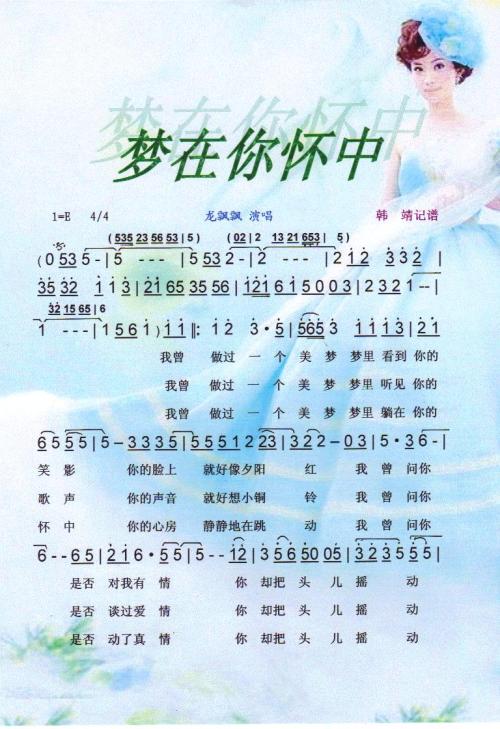 梦在你怀中
1=E 4/4 龙飘飘 演唱 韩 靖记谱
(535 23 56 53 | 5) (02 | 2 13 21 653 | 5)
(0 53 5 - | 5 - - - | 5 53 2 - | 2 - - - | 2 1 2 3 3 2 |
35 32 1 1 3 | 2161 65 35 56 | 1 2161 5 1 2 3 2 1 - - |
32 15 65 | 6
1 - - - | 1 5 6 1) | 1 1 ‖: 1 2 3 · 5 | 565 3 1 1 1 3 | 2 1
我曾 做过 一 个 美 梦 梦里 看到 你的
我曾 做过 一 个 美 梦 梦里 听见 你的
我曾 做过 一 个 美 梦 梦里 躺在 你的
6 5 5 5 | 5 - 3 3 3 5 | 5 5 5 1 2 23 | 3 2 2 - 0 3 | 5 · 3 6 - |
笑 影 你的 脸上 就好像夕阳 红 我 曾 问你
歌 声 你的 声音 就好想小铜 铃 我 曾 问你
怀 中 你的 心房 静静地在跳 动 我 曾 问你
6 - - 6 5 | 2 1 6 · 5 | 5 - - 12 | 3 5 6 05 05 | 3 2 3 5 5 5 |
是否 对我有 情 你 却把 头 儿 摇 动
是否 谈过爱 情 你 却把 头 儿 摇 动
是否 动了真 情 你 却把 头 儿 摇 动